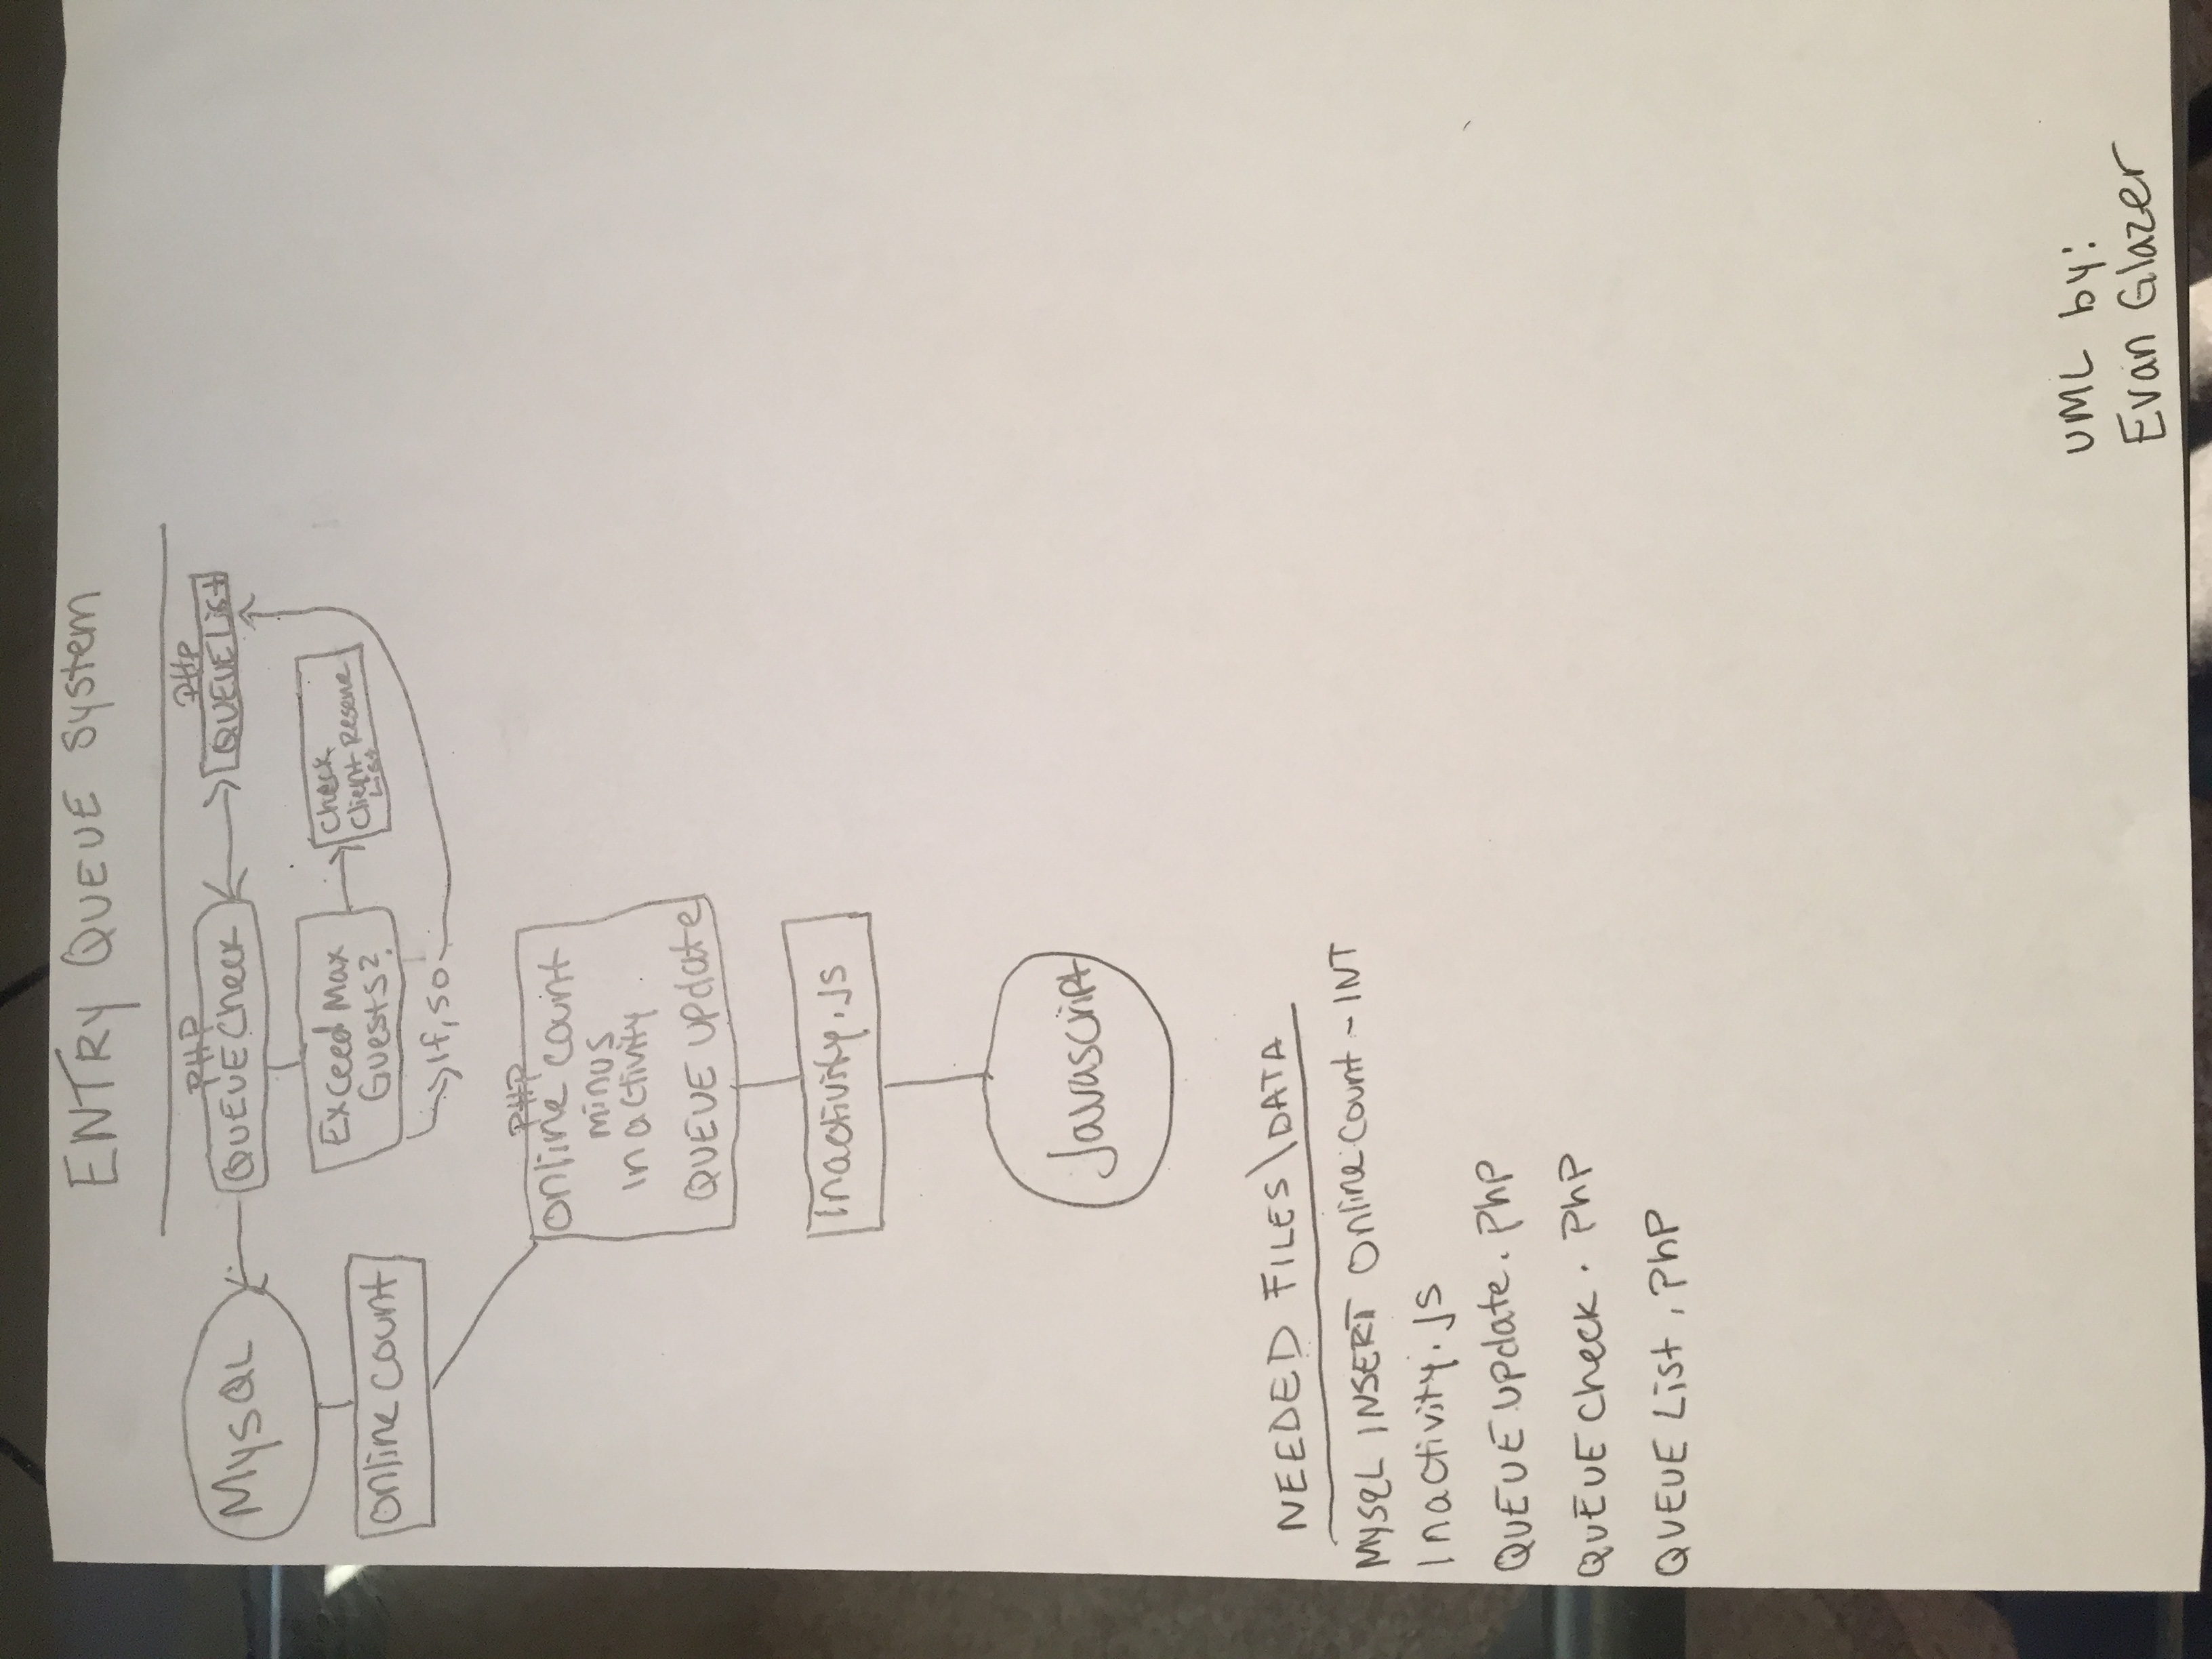 ENTRY QUEUE System
PHP
PHP
MySQL
QUEUE Check
QUEUE List
Exceed Max
Guests?
Check
Client Reserve
List
online count
If, so
PHP
online count
minus
Inactivity
QUEUE update
Inactivity.js
Javascript
NEEDED FILES\DATA
MYSQL INSERT Online count - INT
Inactivity.js
QUEUE update.php
QUEUE check.php
QUEUE List.php
UML by:
Evan Glazer